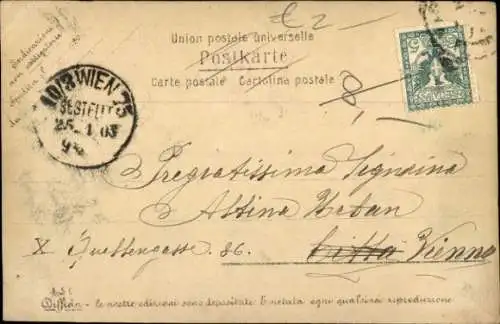 £ 2
Union postale universelle
Postkarte
Carte postale Cartolina postale
10/3 WIEN 75
BESTELLT
25. 1. 03
Pregiatissima Signorina
Attina Urban
X Quellengasse 86.
Città Vienna
Diffida - le nostre edizioni sono depositate. È vietata ogni qualsiasi riproduzione